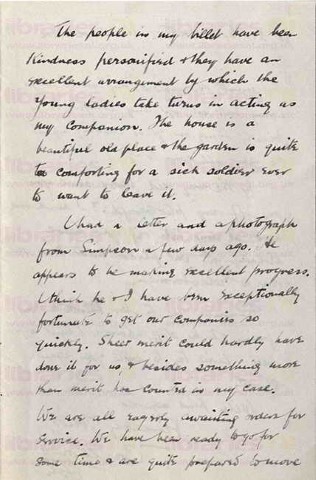 The people in my billet have been
kindness personified & they have an
excellent arrangement by which the
young ladies take turns in acting as
my companion. The house is a
beautiful old place & the garden is quite
too comforting for a sick soldier ever
to want to leave it.
I had a letter and a photograph
from Simpson a few days ago. He
appears to be making excellent progress.
I think he & I have been exceptionally
fortunate to get our companies so
quickly. Sheer merit could hardly have
done it for us & besides something more
than merit has counted in my case.
We are all eagerly awaiting orders for
Service. We have been ready to go for
some time & are quite prepared to move